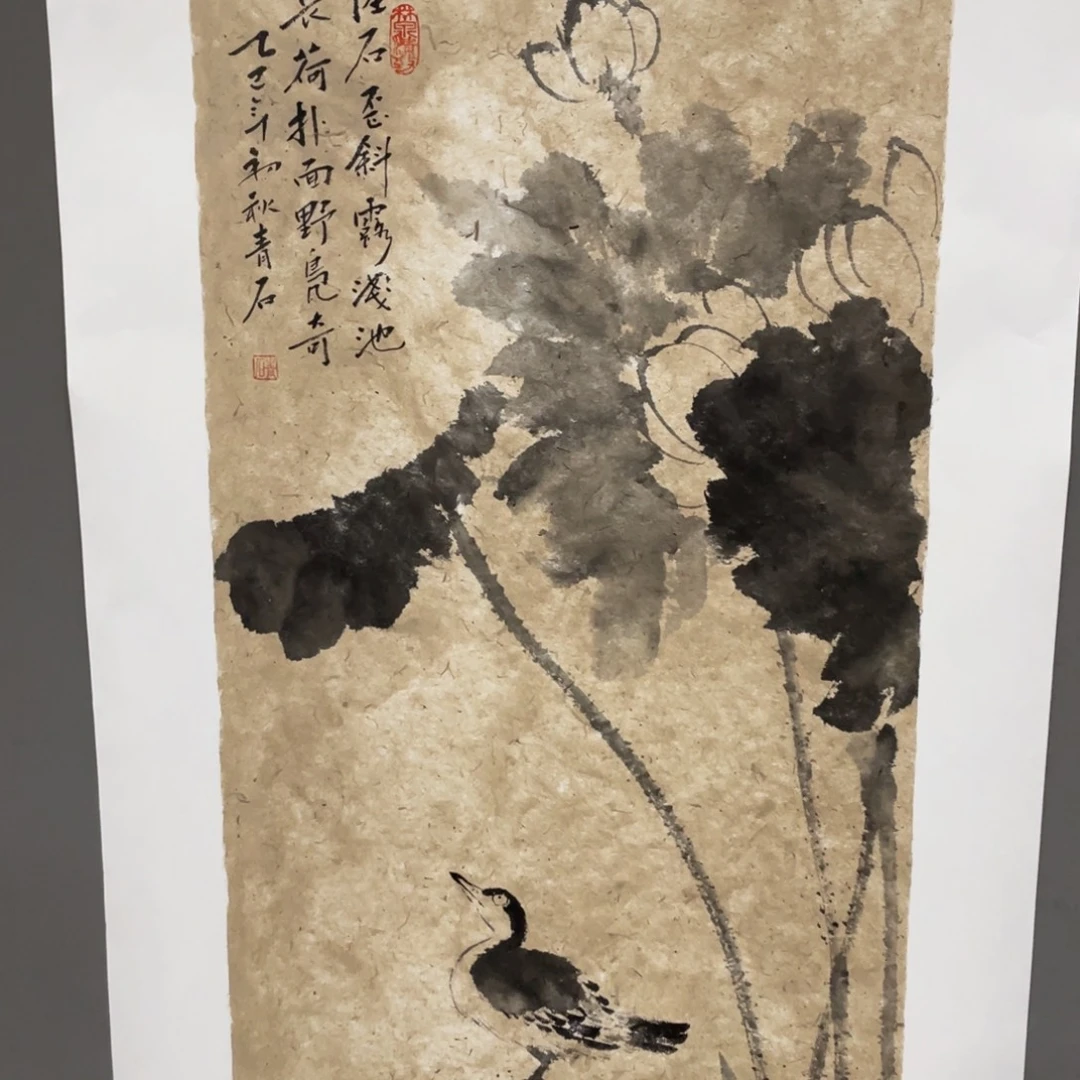 石歪斜露淺池
長荷扑面野鳧奇
乙巳年初秋青石